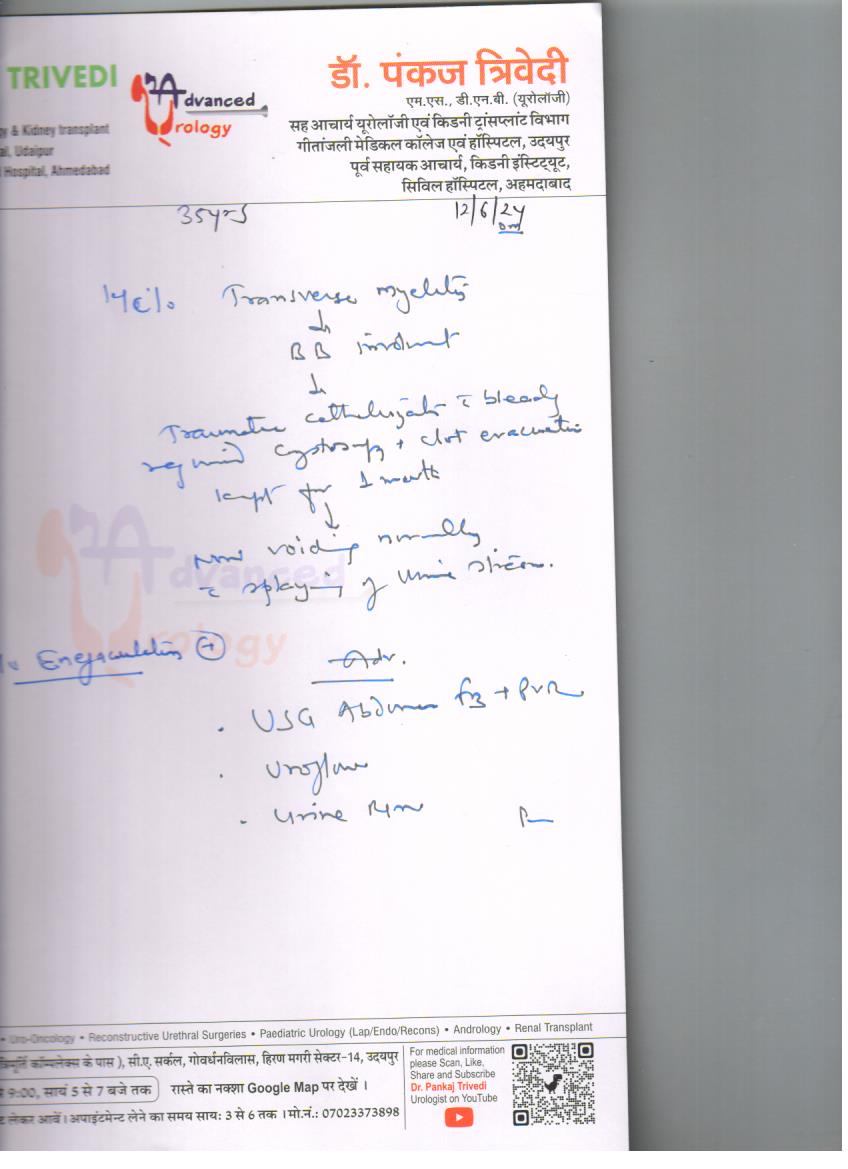 TRIVEDI
Advanced
Urology
y & Kidney transplant
al, Udaipur
Hospital, Ahmedabad
डॉ. पंकज त्रिवेदी
एम.एस., डी.एन.बी. (यूरोलॉजी)
सह आचार्य यूरोलॉजी एवं किडनी ट्रांसप्लांट विभाग
गीतांजली मेडिकल कॉलेज एवं हॉस्पिटल, उदयपुर
पूर्व सहायक आचार्य, किडनी इंस्टिट्यूट,
सिविल हॉस्पिटल, अहमदाबाद
35yrs
12/6/24
Transverse myelitis
↓
BB involvement
↓
Traumatic catheterization c bleeding
required cystoscopy + clot evacuation
kept for 1 month
↓
Now voiding normally
c splaying of urine stream.
Advanced
Urology
Adv.
. USG Abdomen + PVR
. Uroflow
. Urine
• Uro-Oncology • Reconstructive Urethral Surgeries • Paediatric Urology (Lap/Endo/Recons) • Andrology • Renal Transplant
कॉम्पलेक्स के पास ), सी.ए. सर्कल, गोवर्धनविलास, हिरण मगरी सेक्टर-14, उदयपुर
9:00, सायं 5 से 7 बजे तक
रास्ते का नक्शा Google Map पर देखें ।
लेकर आवें । अपाइंटमेन्ट लेने का समय सायः 3 से 6 तक । मो.नं.: 07023373898
For medical information
please Scan, Like,
Share and Subscribe
Dr. Pankaj Trivedi
Urologist on YouTube